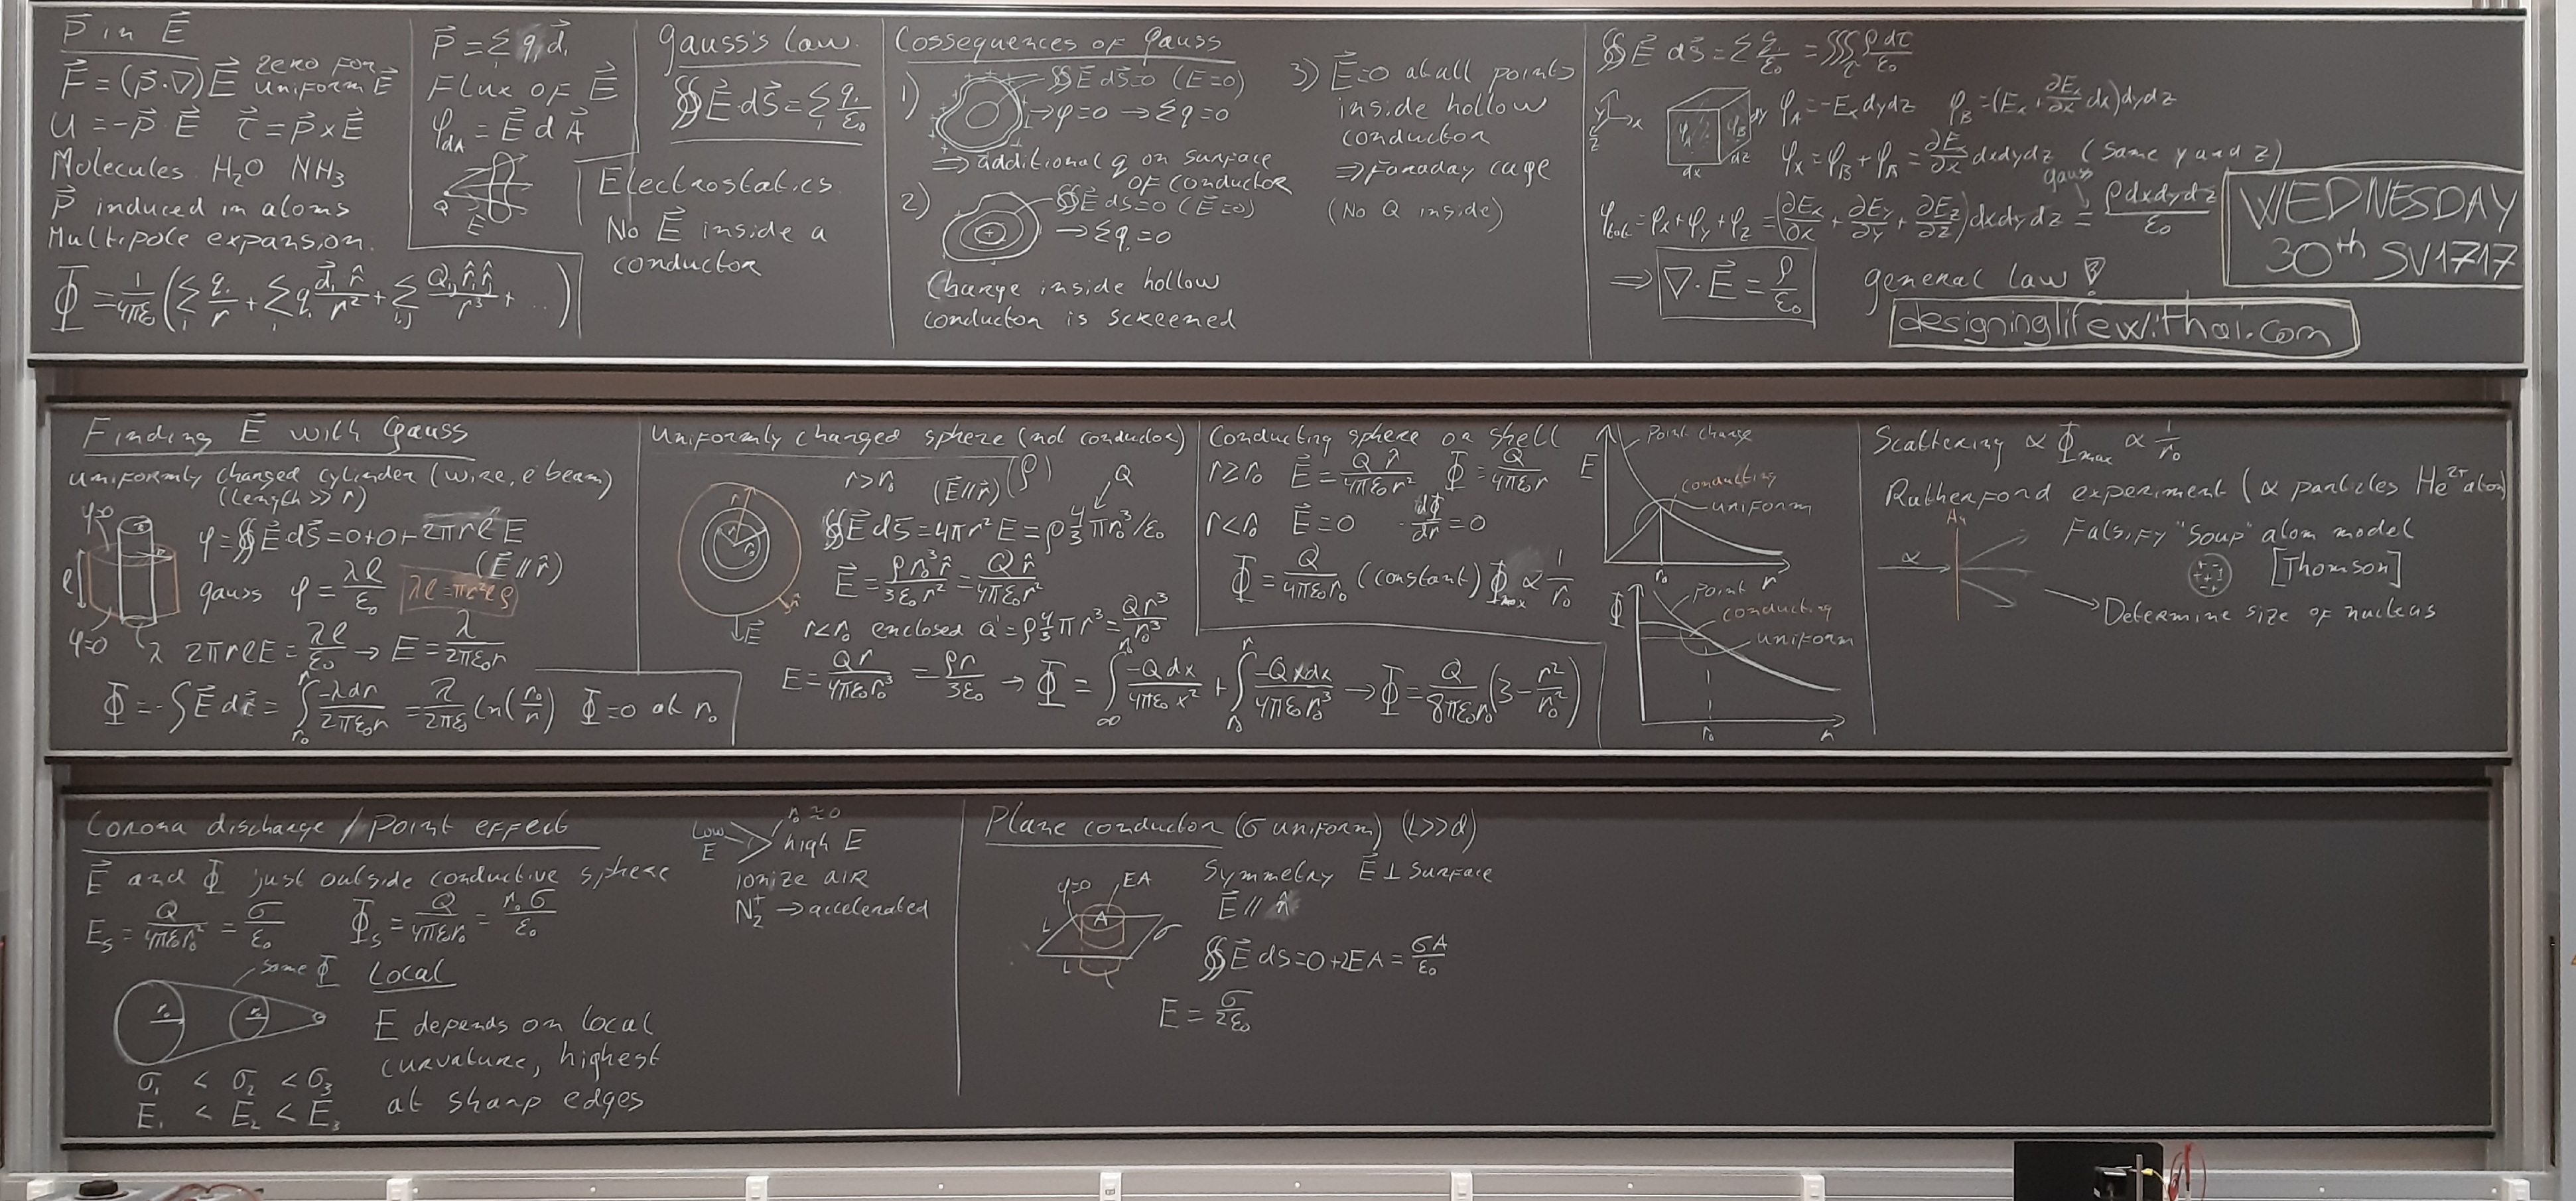 P⃗ in E⃗
F⃗ = (p⃗·∇)E⃗ zero for uniform E⃗
U = -p⃗·E⃗ τ⃗ = p⃗ x E⃗
Molecules: H₂O NH₃
P⃗ induced in atoms
Multipole expansion.
Φ = 1/4πε₀ (Σᵢ qᵢ/r + Σᵢ qᵢ d⃗ᵢ·r̂/r² + Σᵢ,ⱼ Qᵢⱼ r̂ᵢ r̂ⱼ/r³ + ...)
P⃗ = Σᵢ qᵢ d⃗ᵢ
Flux of E⃗
φ_dA = E⃗ d A⃗
Q
E⃗
Gauss's law.
∯ E⃗·dS⃗ = Σᵢ qᵢ/ε₀
Electrostatics.
No E⃗ inside a
conductor
Cossequences of Gauss
1) ∯ E⃗ dS⃗=0 (E=0)
→ φ=0 → Σq=0
⇒ additional q on surface
of conductor
2) ∯ E⃗ ds=0 (E⃗=0)
→ Σq=0
Charge inside hollow
conductor is screened
3) E⃗=0 at all points
inside hollow
conductor
⇒ Faraday cage
(No Q inside)
∯ E⃗ dS⃗ = Σ qᵢ/ε₀ = ∭_τ ρ dτ/ε₀
φ_A = -Eₓ dydz φ_B = (Eₓ + ∂Eₓ/∂x dx) dydz
y x z φ_A φ_B dy dz dx
φₓ = φ_B + φ_A = ∂Eₓ/∂x dxdydz (same y and z)
gauss
φ_tot = φₓ + φ_y + φ_z = (∂Eₓ/∂x + ∂E_y/∂y + ∂E_z/∂z) dxdydz = ρ dxdydz/ε₀
⇒ ∇·E⃗ = ρ/ε₀ general law!
WEDNESDAY
30th SV1717
designinglifewithai.com
Finding E⃗ with Gauss
Uniformly charged cylinder (wire, e⁻ beam)
(length >> r)
φ=0
φ = ∯ E⃗ dS⃗ = 0+0+2πrℓE
(E⃗ // r̂)
gauss φ = λℓ/ε₀ λℓ = πr²ℓρ
ℓ
φ=0 λ 2πrℓE = λℓ/ε₀ → E = λ/2πε₀r
Φ = -∫ E⃗ dr⃗ = ∫_r₀^r -λdr/2πε₀r = λ/2πε₀ ln(r₀/r) Φ=0 at r₀
Uniformly charged sphere (not conductor)
r>r₀ (E⃗//r̂) (ρ) Q
∯ E⃗ dS⃗ = 4πr²E = ρ 4/3 πr₀³/ε₀
E⃗ = ρ r₀³ r̂/3ε₀r² = Q r̂/4πε₀r²
n̂
E⃗
r<r₀ enclosed Q' = ρ 4/3 πr³ = Qr³/r₀³
E = Qr/4πε₀r₀³ = ρr/3ε₀ → Φ = ∫_∞^r₀ -Qdx/4πε₀x² + ∫_r₀^r -Qxdx/4πε₀r₀³ → Φ = Q/8πε₀r₀ (3 - r²/r₀²)
Conducting sphere or shell
r≥r₀ E⃗ = Q r̂/4πε₀r² Φ = Q/4πε₀r
r<r₀ E⃗=0 dΦ/dr = 0
Φ = Q/4πε₀r₀ (constant) Φ_max ∝ 1/r₀
E
Point charge
conducting
uniform
r₀ r
Φ
Point
conducting
uniform
r₀ r
Scattering ∝ Φ_max ∝ 1/r₀
Rutherford experiment (α particles He²⁺ atom)
Au
Falsify "Soup" atom model
α [Thomson]
→ Determine size of nucleus
Corona discharge / Point effect
E⃗ and Φ just outside conductive sphere
E_s = Q/4πε₀r₀² = σ/ε₀ Φ_s = Q/4πε₀r₀ = r₀σ/ε₀
Same Φ
Local
E depends on local
curvature, highest
at sharp edges
σ₁ < σ₂ < σ₃
E₁ < E₂ < E₃
r₀≈0
Low E high E
ionize air
N₂⁺ → accelerated
Plane conductor (σ uniform) (L>>d)
φ=0 EA
A
L σ
L
Symmetry E⃗ ⊥ Surface
E⃗ // n̂
∯ E⃗ ds = 0+2EA = σA/ε₀
E = σ/2ε₀